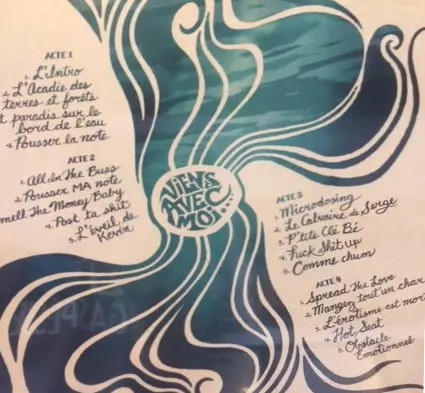 ACTE 1
1. L'Intro
2. L'Acadie des
terres et forêts
paradis sur le
bord de l'eau
4. Pousser la note
ACTE 2
1. All In The Buss
2. Pousser MA note
mell The Money Baby
4. Post ta shit
5. L'éveil de
Kevin
VIENS
AVEC
MOI
ACTE 3
1. Microdosing
2. Le Calvaire de Serge
3. P'tite Clé Bé
4. Fuck Shit Up
5. Comme chum
ACTE 4
1. Spread The Love
2. Mangez tout un char
3. L'érotisme est mor
4. Hot Seat
5. Obstacle
Émotionnel